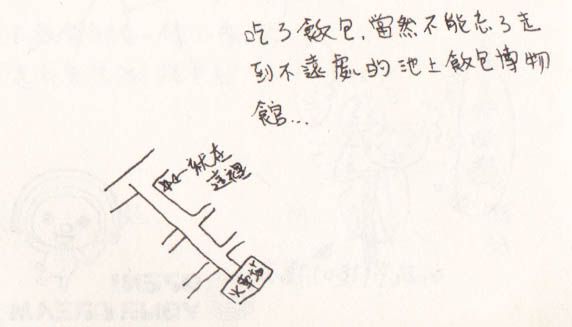 吃了飯包,當然不能忘了走
到不遠處的池上飯包博物
館...
就在
這裡
火車站